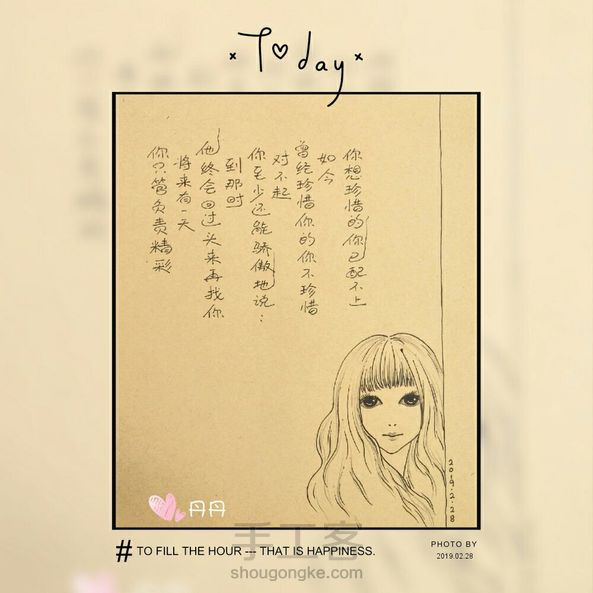 Today
你只管负责精彩
将来有一天
他终会回过头来再找你
到那时
你至少还能骄傲地说：
对不起
曾经珍惜你的你不珍惜
如今
你想珍惜的你已配不上
2019.2.28
丹丹
# TO FILL THE HOUR --- THAT IS HAPPINESS.
PHOTO BY
2019.02.28
手工客
shougongke.com